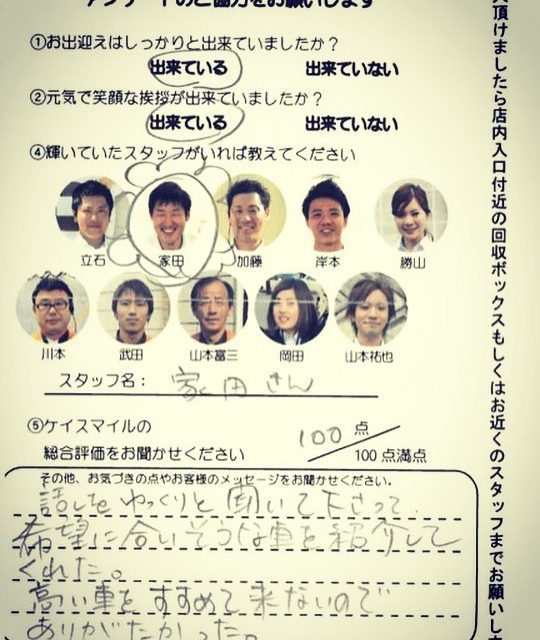 アンケートのご協力をお願いします
①お出迎えはしっかりと出来ていましたか？
出来ている 出来ていない
②元気で笑顔な挨拶が出来ていましたか？
出来ている 出来ていない
④輝いていたスタッフがいれば教えてください
立石 家田 加藤 岸本 勝山
川本 武田 山本富三 岡田 山本祐也
スタッフ名： 家田さん
⑤ケイスマイルの
総合評価をお聞かせください
100 点
100点満点
その他、お気づきの点やお客様のメッセージをお聞かせください。
話しをゆっくりと聞いて下さって、
希望に合いそうな車を紹介して
くれた。
高い車をすすめて来ないので
ありがたかった。
頂けましたら店内入口付近の回収ボックスもしくはお近くのスタッフまでお願いし